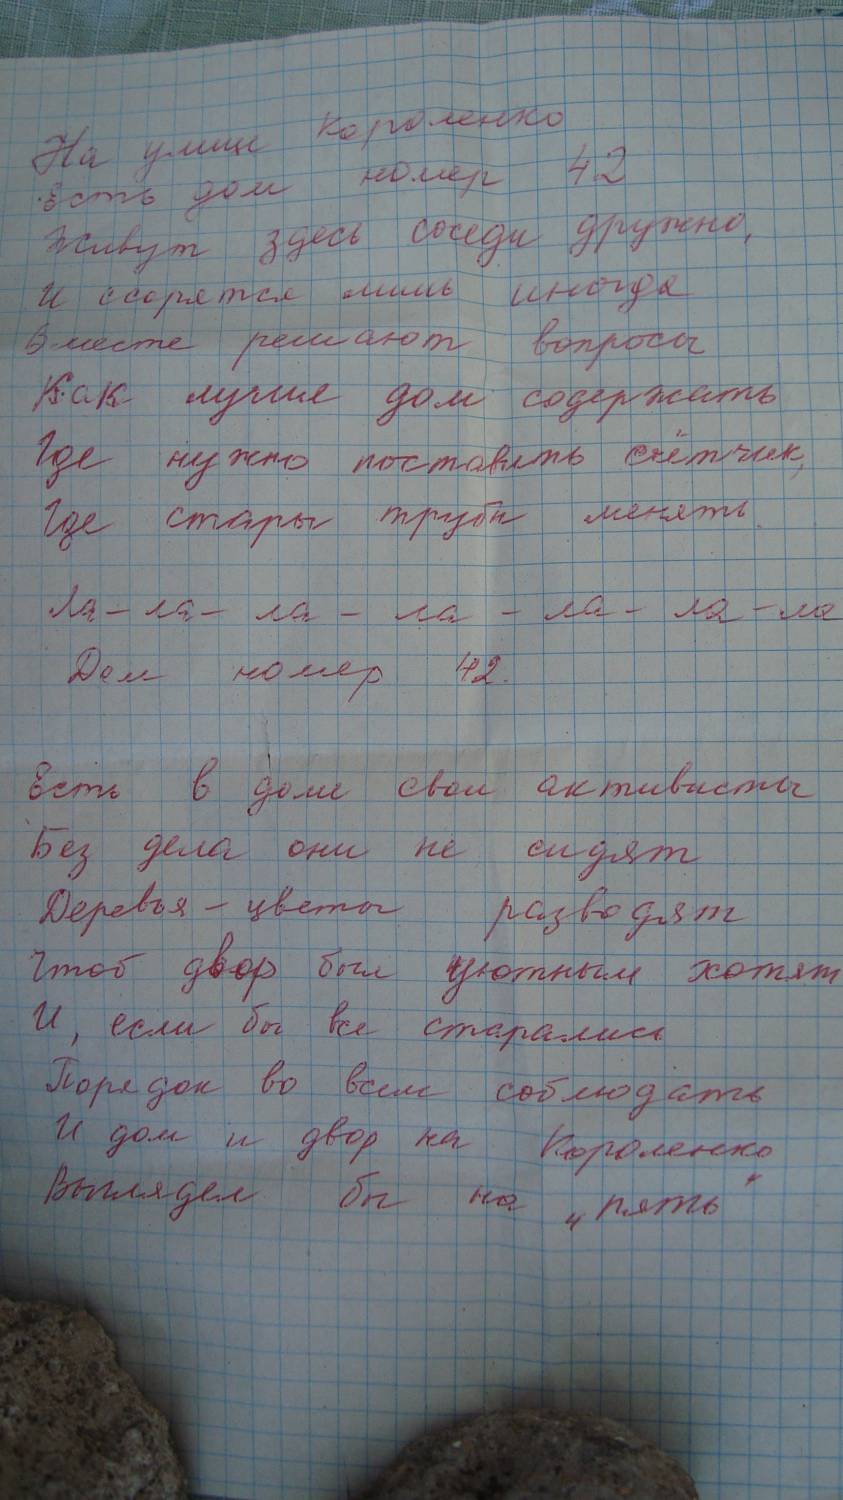 На улице Короленко
Есть дом номер 42
Живут здесь соседи дружно,
И ссорятся лишь иногда
Вместе решают вопросы
Как лучше дом содержать
Где нужно поставить счётчик,
Где стары трубы менять.
Ла-ла-ла-ла-ла-ла-ла
Дом номер 42.
Есть в доме свои активисты
Без дела они не сидят
Деревья-цветы разводят
Чтоб двор был уютным хотят
И, если бы все старались
Порядок во всем соблюдать
И дом и двор на Короленко
Выглядел бы на „пять"